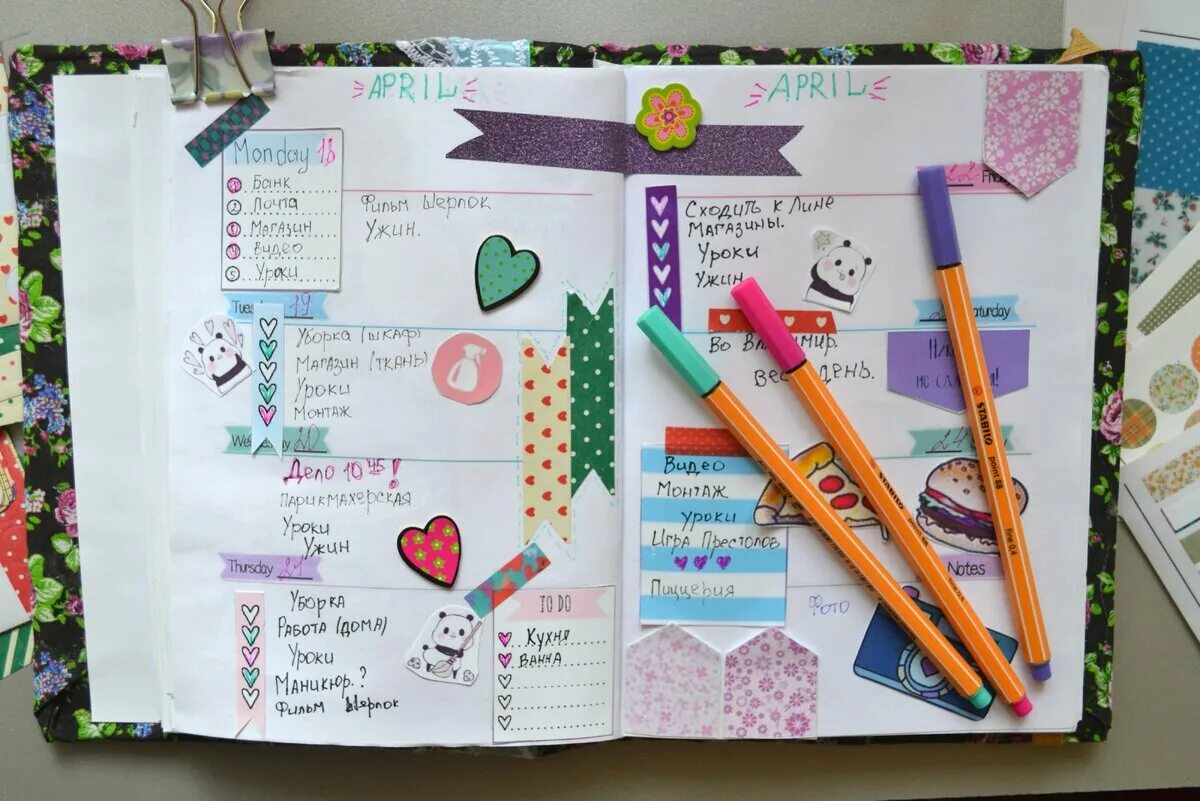 APRIL
Monday 18
1 Банк
2 Почта
3 Магазин
4 Видео
5 Уроки
Фильм Шерлок
Ужин.
19
Уборка (шкаф)
Магазин (ткань)
Уроки
Монтаж
20
Дело 10 45!
парикмахерская
Уроки
Ужин
Thursday 21
Уборка
Работа (дома)
Уроки
Маникюр.?
Фильм Шерлок
TO DO
Кухня
Ванна
APRIL
22
Сходить к Лине
Магазины.
Уроки
Ужин
Во
весь день.
не
24
Видео
Монтаж
уроки
Игра Престолов
Пиццерия
Notes
Фото
STABILO point 88 fine 0.4
STABILO point 88